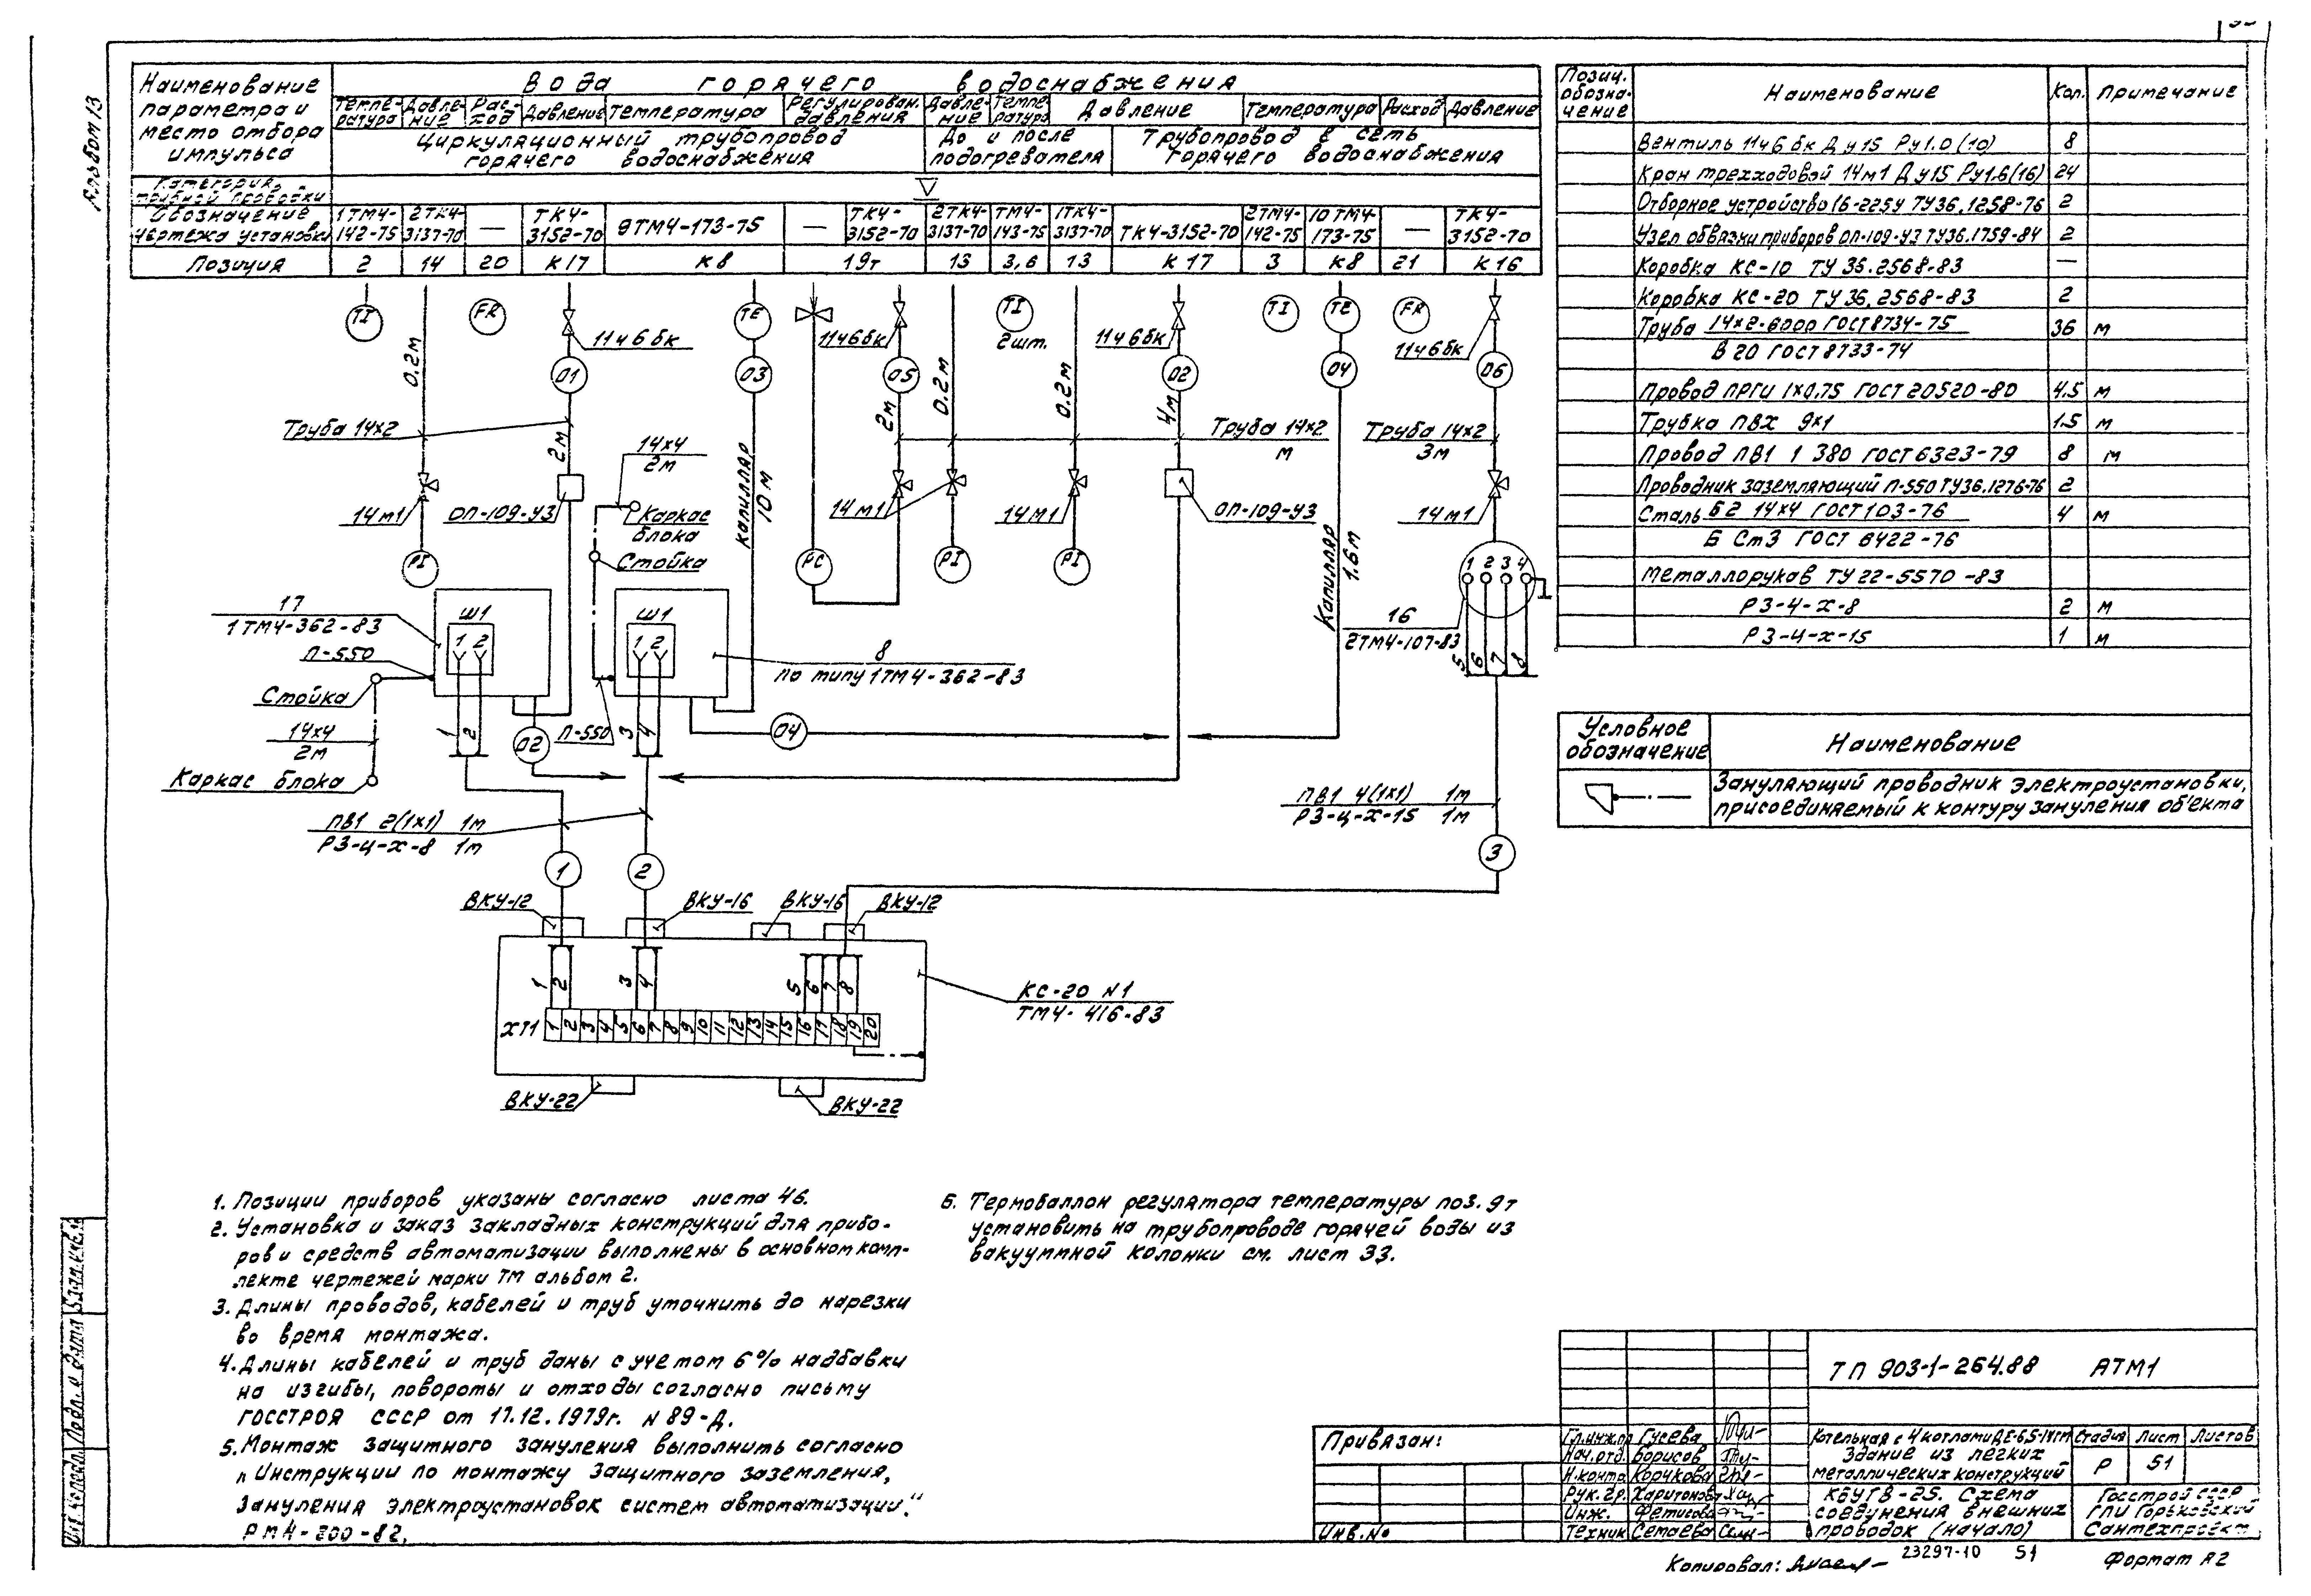 Альбом 13
Наименование параметра и место отбора импульса
Вода горячего водоснабжения
Темпе-ратура
Давле-ние
Рас-ход
Давление
Температура
Регулирован. давления
Давле-ние
Темпе-ратура
Давление
Температура
Расход
Давление
Циркуляционный трубопровод горячего водоснабжения
До и после подогревателя
Трубопровод в сеть горячего водоснабжения
Категория трубной проводки
V
Обозначение чертежа установки
1ТМ4-142-75
2ТК4-3137-70
—
ТК4-3152-70
9ТМ4-173-75
—
ТК4-3152-70
2ТК4-3137-70
ТМ4-143-75
1ТК4-3137-70
ТК4-3152-70
2ТМ4-142-75
10ТМ4-173-75
—
ТК4-3152-70
Позиция 2 14 20 К17 К8 19т 13 3,6 13 К17 3 К8 21 К16
TI
FR
TE
TI
2шт.
TI
TE
FR
11ч6бк
11ч6бк
11ч6бк
11ч6бк
0.2м
01
03
05
0.2м
0.2м
02
04
06
Труба 14х2
2м
14х4
2м
2м
4м
Труба 14х2
м
Труба 14х2
3м
14м1
ОП-109-У3
Каркас блока
Стойка
капилляр 10м
14м1
14м1
ОП-109-У3
14м1
Капилляр 1.6м
PI
PC
PI
PI
1 2 3 4
17
1ТМ4-362-83
Ш1
1 2
Ш1
1 2
8
по типу 1ТМ4-362-83
16
2ТМ4-107-83
5 6 7 8
П-550
Стойка
14х4
2м
Каркас блока
1 2
02
П-550
3 4
04
ПВ1 2(1х1) 1м
РЗ-Ц-Х-8 1м
ПВ1 4(1х1) 1м
РЗ-Ц-Х-15 1м
1
2
3
ВКУ-12
ВКУ-16
ВКУ-16
ВКУ-12
1 2
3 4
5 6 7 8
КС-20 N1
ТМ4-416-83
ХТ1
1 2 3 4 5 6 7 8 9 10 11 12 13 14 15 16 17 18 19 20
ВКУ-22
ВКУ-22
Позиц. обозна-чение
Наименование
Кол.
Примечание
Вентиль 11ч6бк Ду15 Ру1.0(10) 8
Кран трехходовой 14м1 Ду15 Ру1.6(16) 24
Отборное устройство 16-225У ТУ36.1258-76 2
Узел обвязки приборов ОП-109-У3 ТУ36.1759-84 2
Коробка КС-10 ТУ 36.2568-83 —
Коробка КС-20 ТУ 36.2568-83 2
Труба 14х2-6000 ГОСТ 8734-75 36 м
В 20 ГОСТ 8733-74
Провод ПРГИ 1х0,75 ГОСТ 20520-80 4.5 м
Трубка ПВХ 9х1 1.5 м
Провод ПВ1 1 380 ГОСТ 6323-79 8 м
Проводник заземляющий П-550 ТУ36.1276-76 2
Сталь Б2 14х4 ГОСТ 103-76 4 м
Б Ст3 ГОСТ 6422-76
Металлорукав ТУ 22-5570-83
РЗ-Ц-Х-8 2 м
РЗ-Ц-Х-15 1 м
Условное обозначение
Наименование
Зануляющий проводник электроустановки,
присоединяемый к контуру зануления об'екта
1. Позиции приборов указаны согласно листа 46.
2. Установка и заказ закладных конструкций для прибо-
ров и средств автоматизации выполнены в основном комп-
лекте чертежей марки ТМ альбом 2.
3. Длины проводов, кабелей и труб уточнить до нарезки
во время монтажа.
4. Длины кабелей и труб даны с учетом 6% надбавки
на изгибы, повороты и отходы согласно письму
Госстроя СССР от 17.12.1979г. N 89-Д.
5. Монтаж защитного зануления выполнить согласно
„Инструкции по монтажу защитного заземления,
зануления электроустановок систем автоматизации.“
РМ4-200-82.
6. Термобаллон регулятора температуры поз. 9т
установить на трубопроводе горячей воды из
вакуумной колонки см. лист 33.
Инв. N подл. Подп. и дата Взам. инв. N
Привязан:
Инв. №
ТП 903-1-264.88 АТМ1
Гл.инж.пр Гусева
Нач.отд. Борисов
Н.контр. Корчкова
Рук. гр. Харитонова
Инж. Фетисова
Техник Семаева
Котельная с 4 котлами ДЕ-6.5-14ГМ
Здание из легких
металлических конструкций
Стадия Лист Листов
Р 51
КБУГВ-25. Схема
соединения внешних
проводок (начало)
Госстрой СССР
ГПИ Горьковский
Сантехпроект
Копировал:
23297-10 51
Формат А2